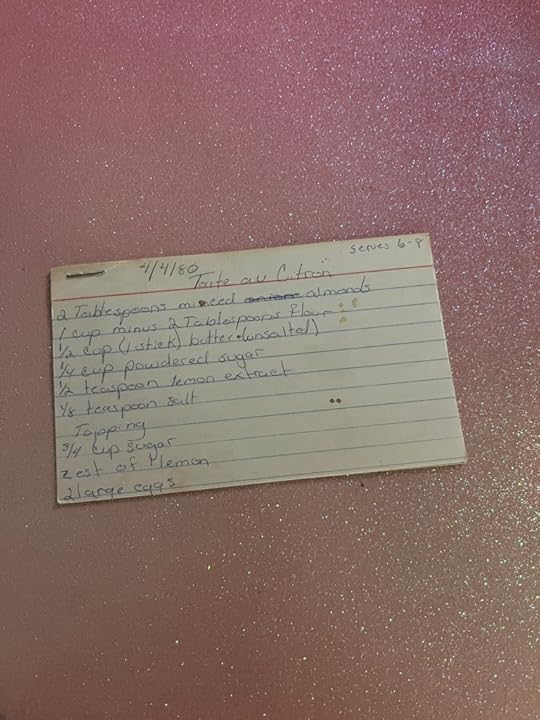 4/4/80
serves 6-8
Tarte au Citron
2 Tablespoons minced onions almonds
1 cup minus 2 Tablespoons flour
1/2 cup (1 stick) butter (unsalted)
1/4 cup powdered sugar
1/2 teaspoon lemon extract
1/8 teaspoon salt
Topping
3/4 cup sugar
zest of 1 lemon
2 large eggs